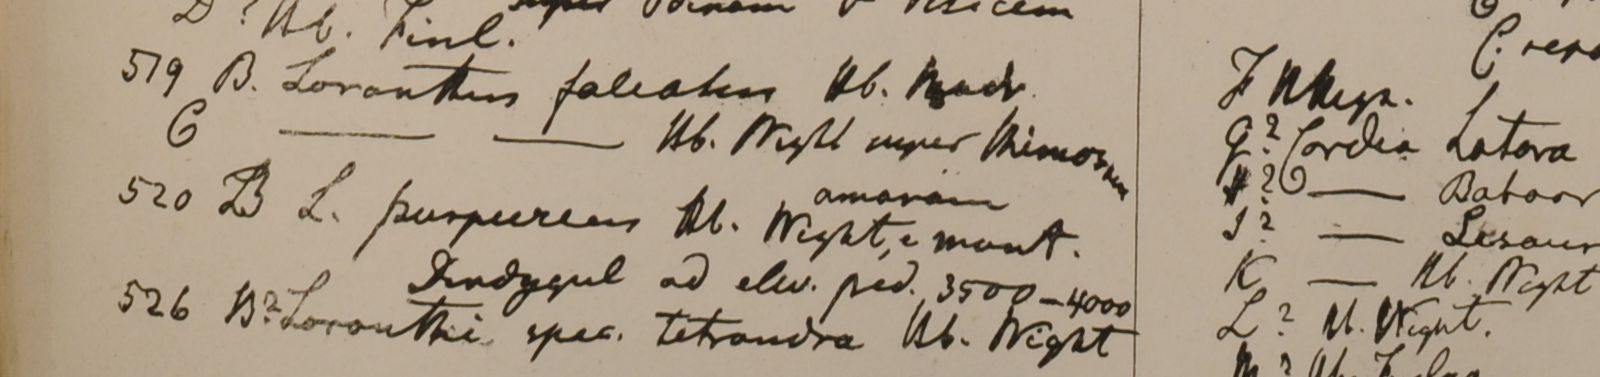 super Ficem
D? Hb. Finl.
519 B. Loranthus falcatus Hb. Madr.
C — — Hb. Wight super Mimosam
amaram
520 B L. purpureus Hb. Wight, e mont.
Dindygul ad elev. ped. 3500-4000
526 B? Loranthi spec. tetrandra Hb. Wight
F
G? Cordia Latora
H? —
I? —
K — Hb. Wight
L? Hb. Wight.
M? Hb.